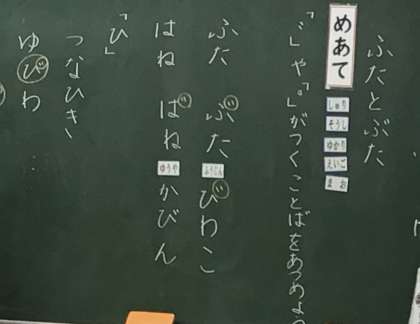 ふたとぶた
めあて
しゅり
そうし
ゆかり
えいご
まお
「゛」や「゜」がつくことばをあつめよう
ふた ぶた
びわこ
はね ばね
ゆうや
かびん
「ひ」
つなひき
ゆびわ